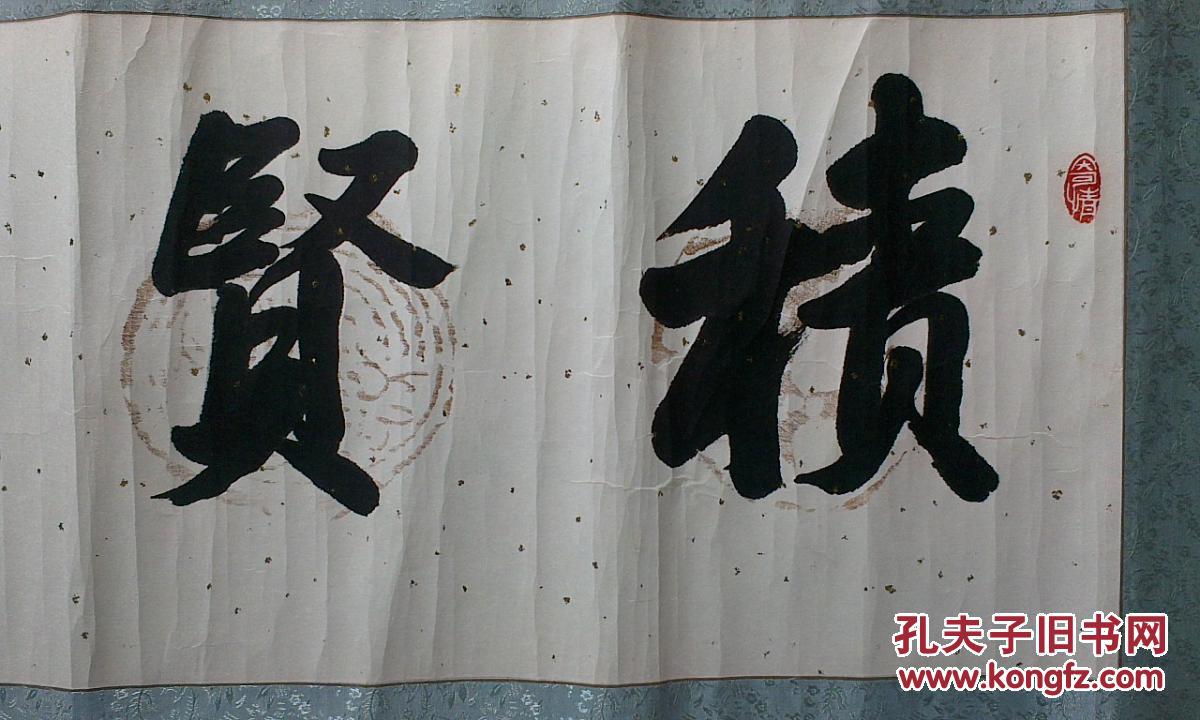 積賢
寄情
孔夫子旧书网
www.kongfz.com